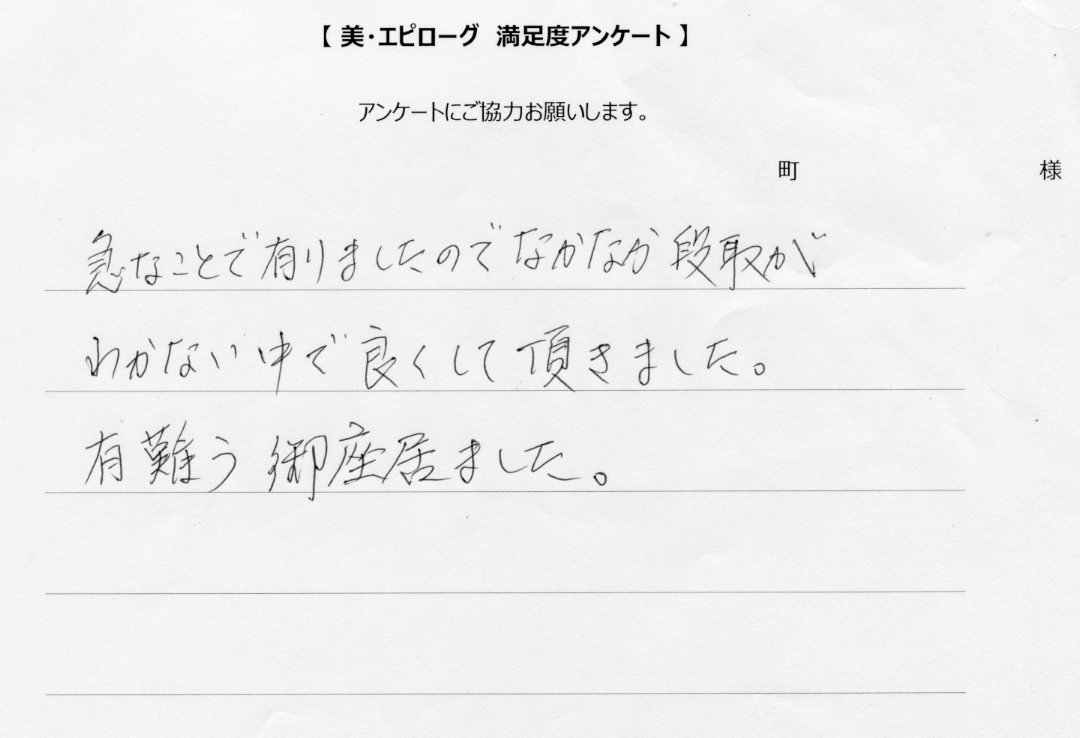 【 美・エピローグ 満足度アンケート 】
アンケートにご協力お願いします。
町 様
急なことで有りましたのでなかなか段取が
わかない中で良くして頂きました。
有難う御座居ました。